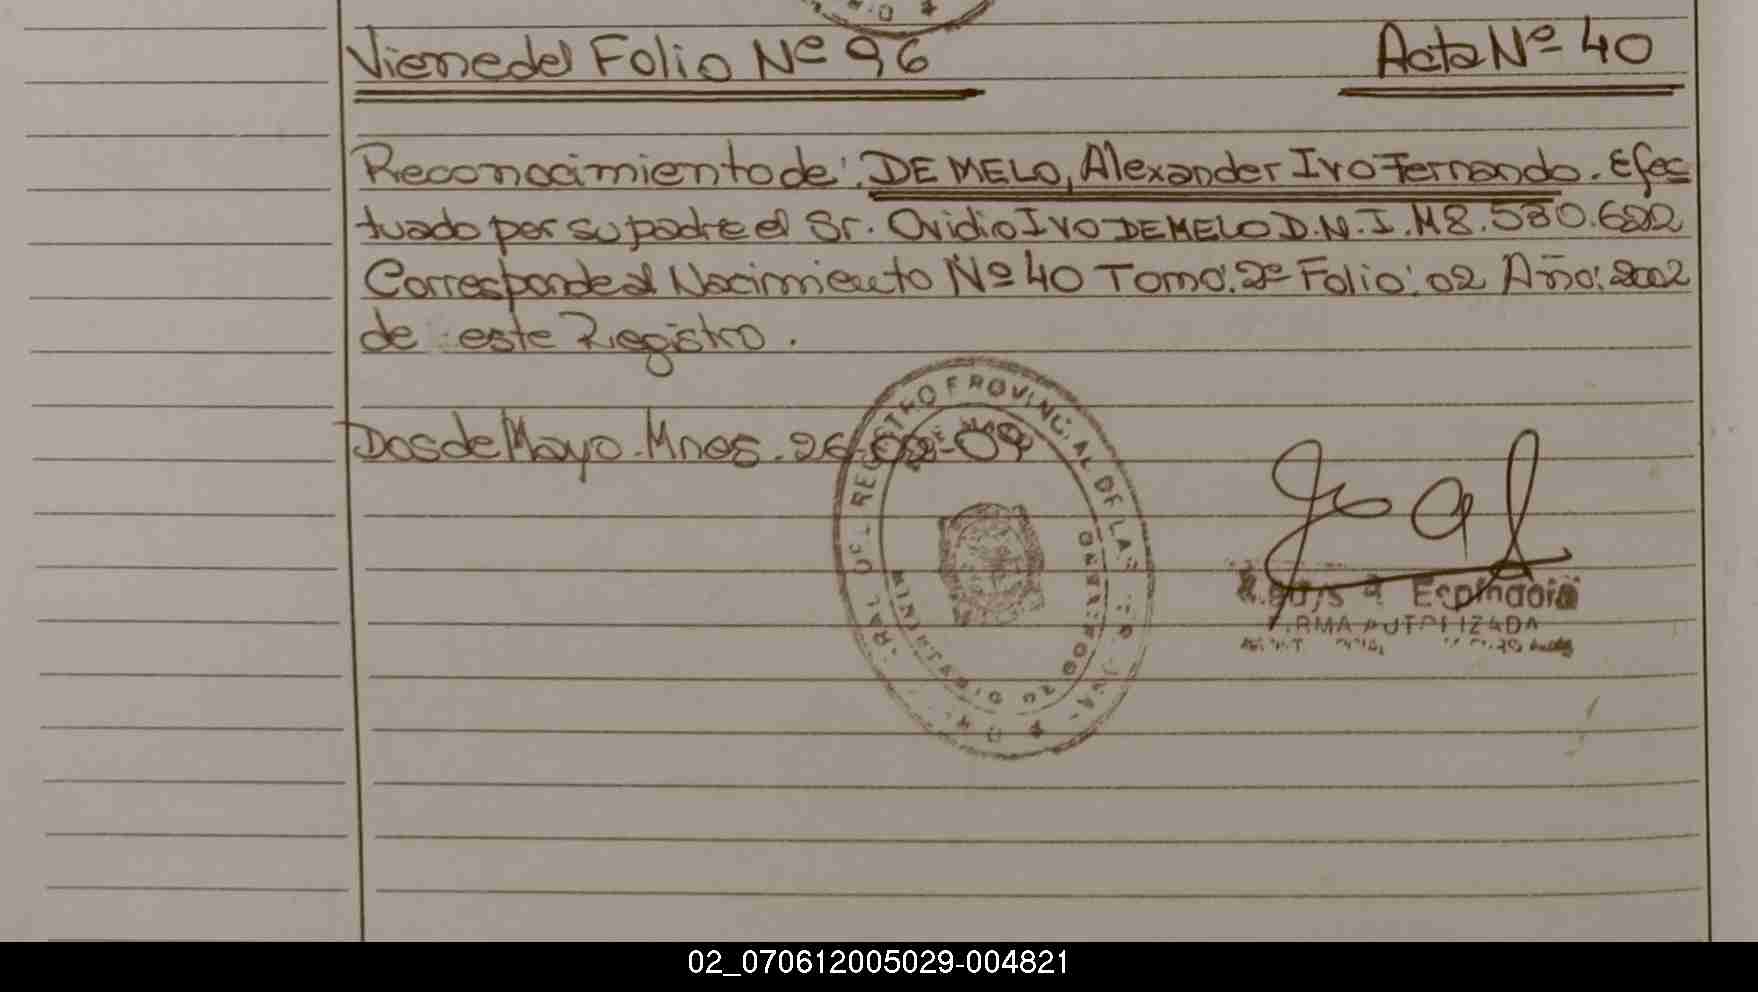 Viene del Folio Nº 96
Acta Nº 40
Reconocimiento de: DE MELO, Alexander Ivo Fernando. Efec
tuado por su padre el Sr. Ovidio Ivo DE MELO D.N.I. M8.580.682
Corresponde al Nacimiento Nº 40 Tomo: 2º Folio: 02 Año: 2002
de este Registro.
Dos de Mayo. Mnes. 26-02-09
REGISTRO PROVINCIAL DE LAS
Espindola
FIRMA AUTORIZADA
02_070612005029-004821